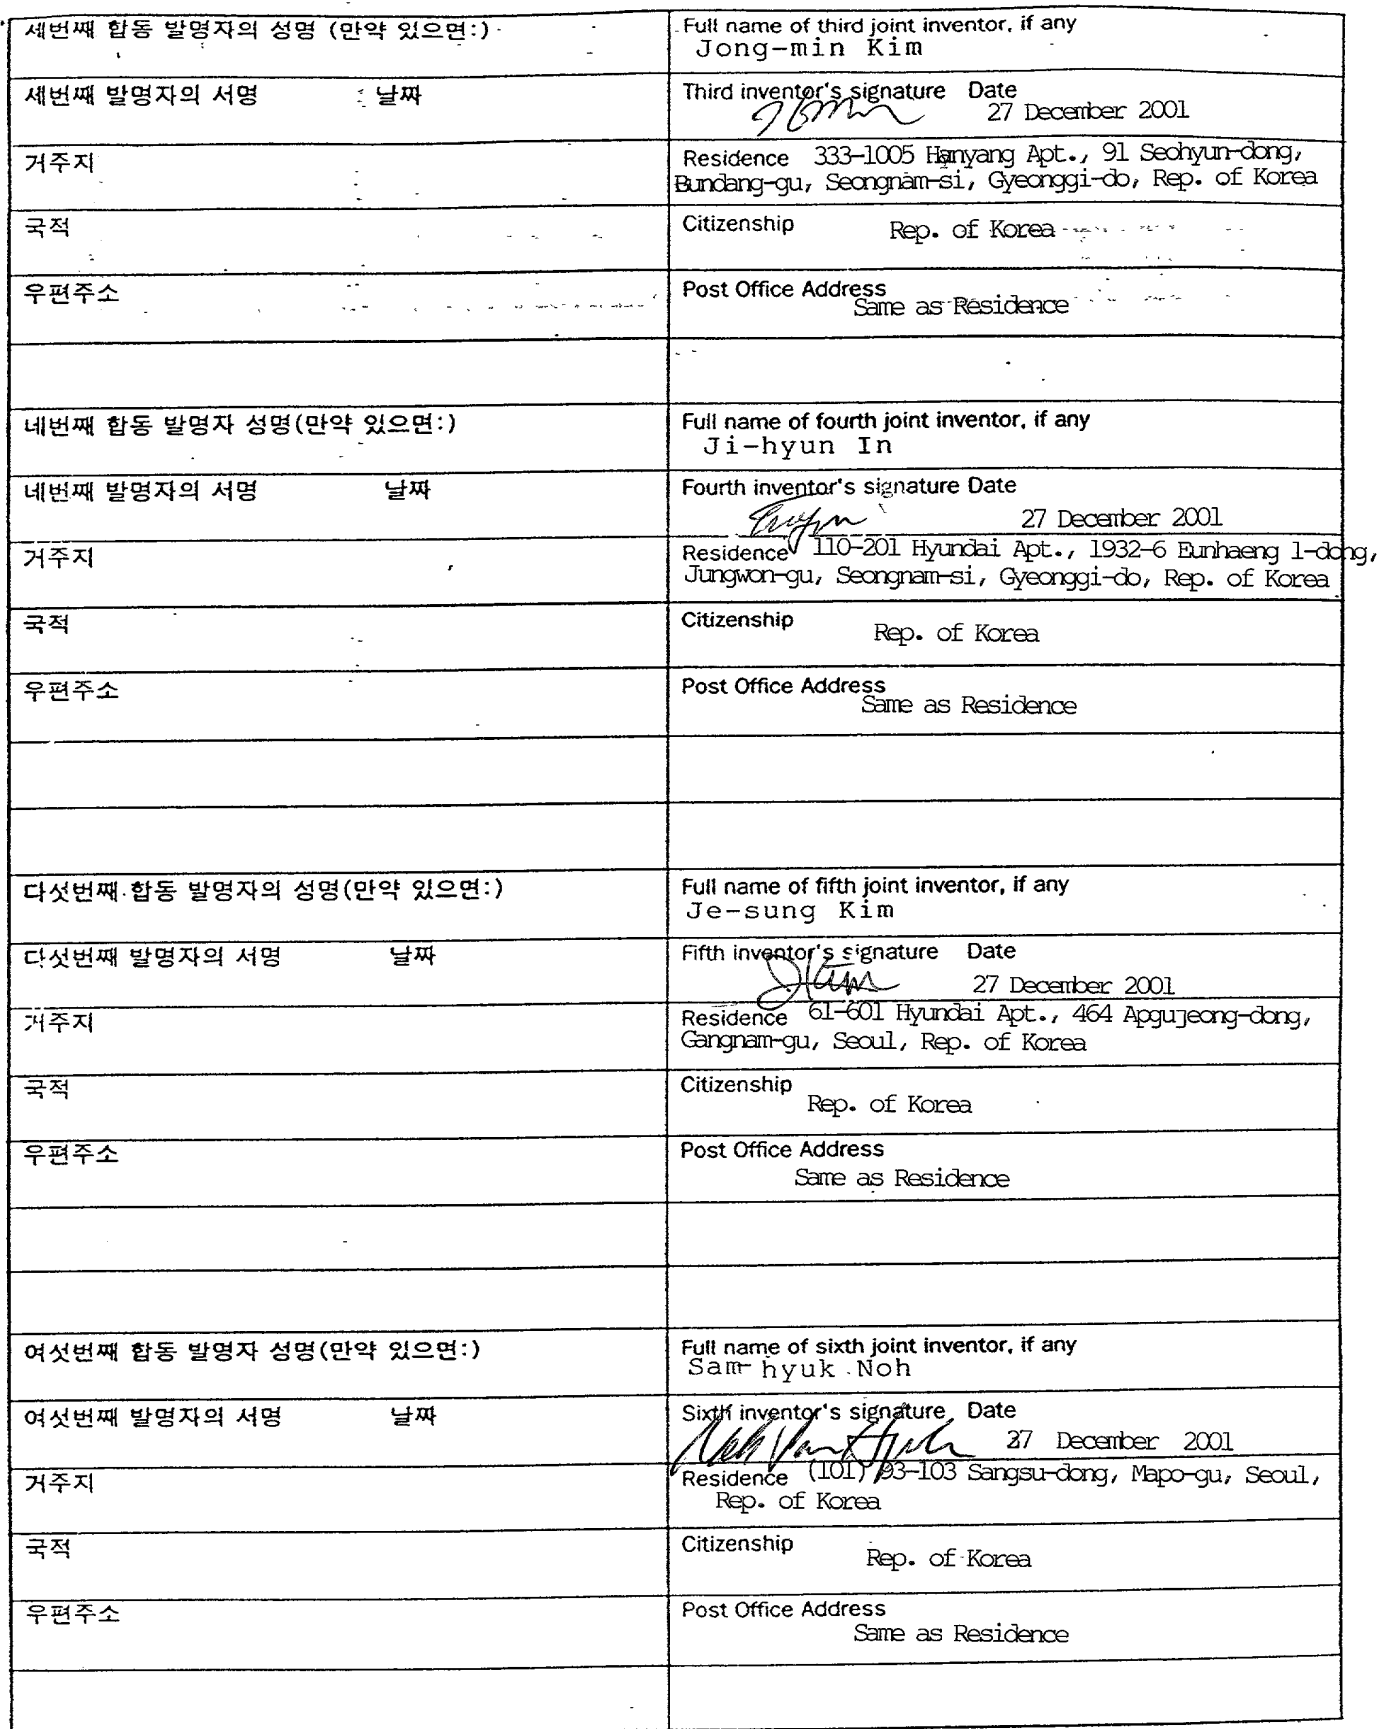 세번째 합동 발명자의 성명 (만약 있으면:)
Full name of third joint inventor, if any
Jong-min Kim
세번째 발명자의 서명 날짜
Third inventor's signature Date
27 December 2001
거주지
Residence 333-1005 Hanyang Apt., 91 Seohyun-dong,
Bundang-gu, Seongnam-si, Gyeonggi-do, Rep. of Korea
국적
Citizenship Rep. of Korea
우편주소
Post Office Address
Same as Residence
네번째 합동 발명자 성명(만약 있으면:)
Full name of fourth joint inventor, if any
Ji-hyun In
네번째 발명자의 서명 날짜
Fourth inventor's signature Date
27 December 2001
거주지
Residence 110-201 Hyundai Apt., 1932-6 Eunhaeng 1-dong,
Jungwon-gu, Seongnam-si, Gyeonggi-do, Rep. of Korea
국적
Citizenship Rep. of Korea
우편주소
Post Office Address
Same as Residence
다섯번째 합동 발명자의 성명(만약 있으면:)
Full name of fifth joint inventor, if any
Je-sung Kim
다섯번째 발명자의 서명 날짜
Fifth inventor's signature Date
JKim 27 December 2001
거주지
Residence 61-601 Hyundai Apt., 464 Apgujeong-dong,
Gangnam-gu, Seoul, Rep. of Korea
국적
Citizenship
Rep. of Korea
우편주소
Post Office Address
Same as Residence
여섯번째 합동 발명자 성명(만약 있으면:)
Full name of sixth joint inventor, if any
Sam-hyuk Noh
여섯번째 발명자의 서명 날짜
Sixth inventor's signature Date
Noh Sam Hyuk 27 December 2001
거주지
Residence (101) 93-103 Sangsu-dong, Mapo-gu, Seoul,
Rep. of Korea
국적
Citizenship Rep. of Korea
우편주소
Post Office Address
Same as Residence